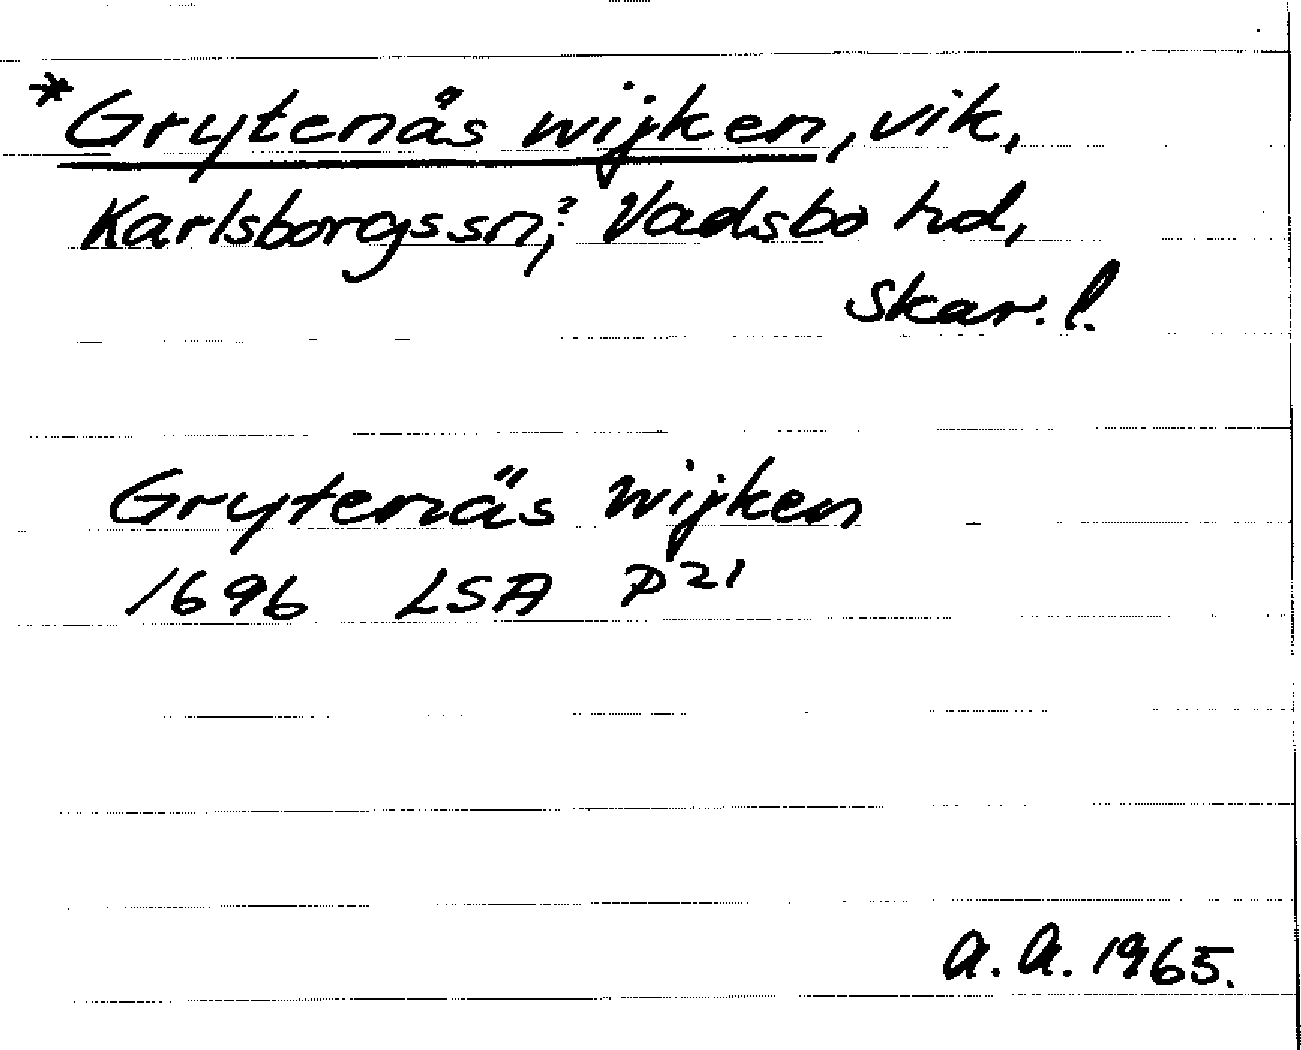 *Grytenäs wijken, vik,
Karlsborgs sn,? Vadsbo hd,
Skar. l.
Grytenäs wijken
1696 LSA P21
A. A. 1965.